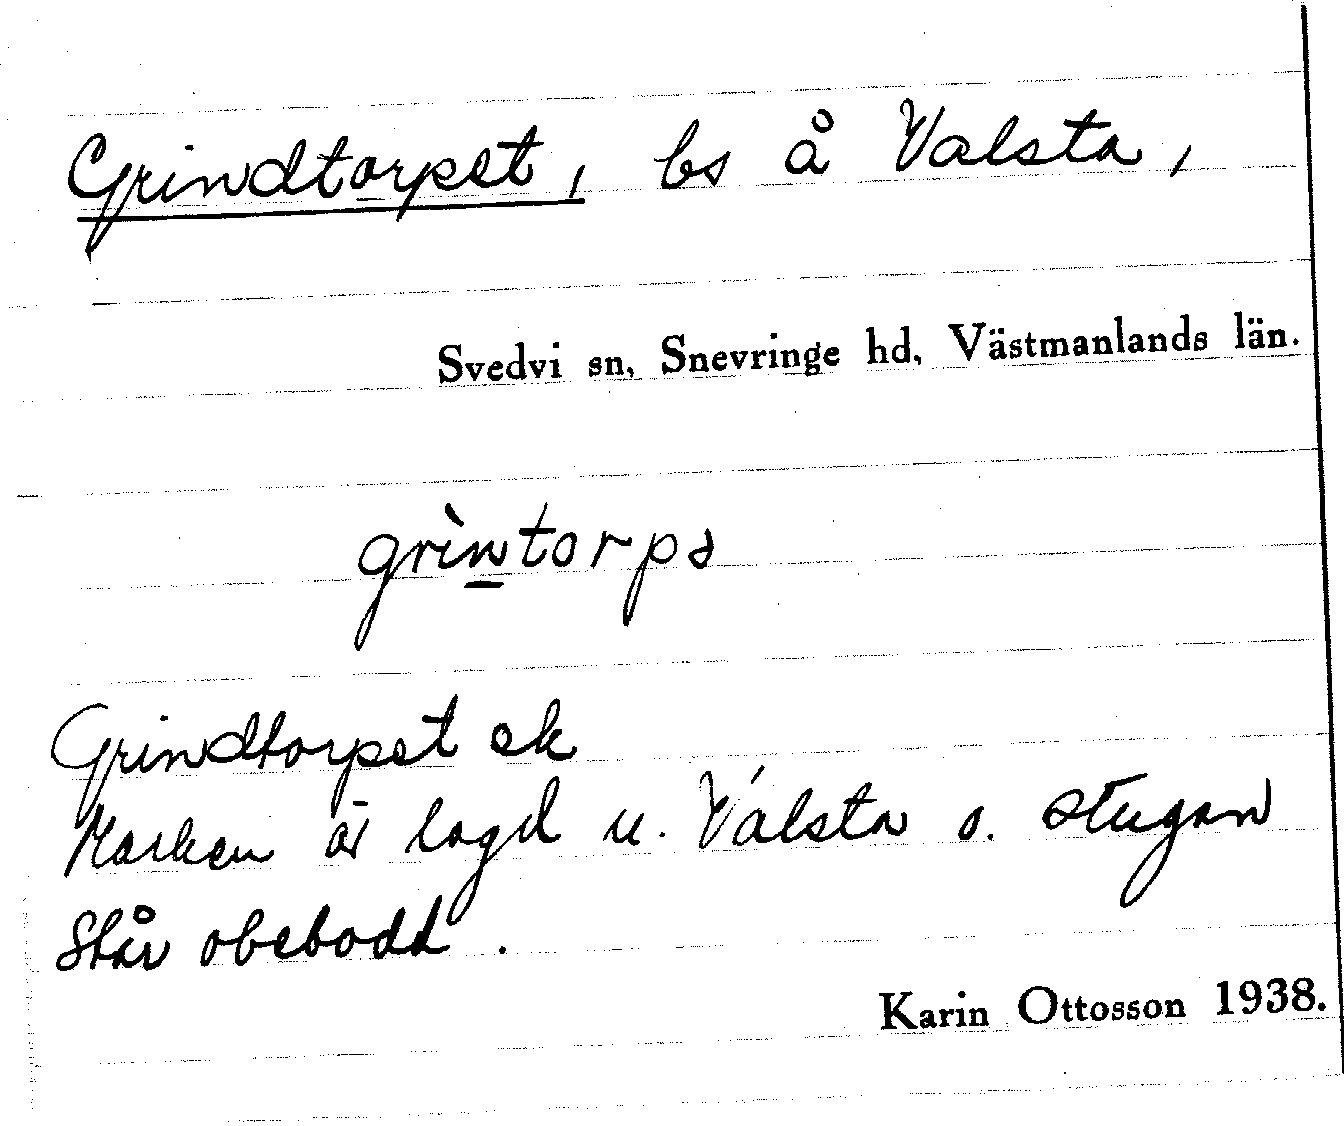 Grindtorpet, bs å Valsta,
Svedvi sn, Snevringe hd, Västmanlands län.
grìntorpə
Grindtorpet ek
Marken är lagd u. Valsta o. stugan
står obebodd.
Karin Ottosson 1938.